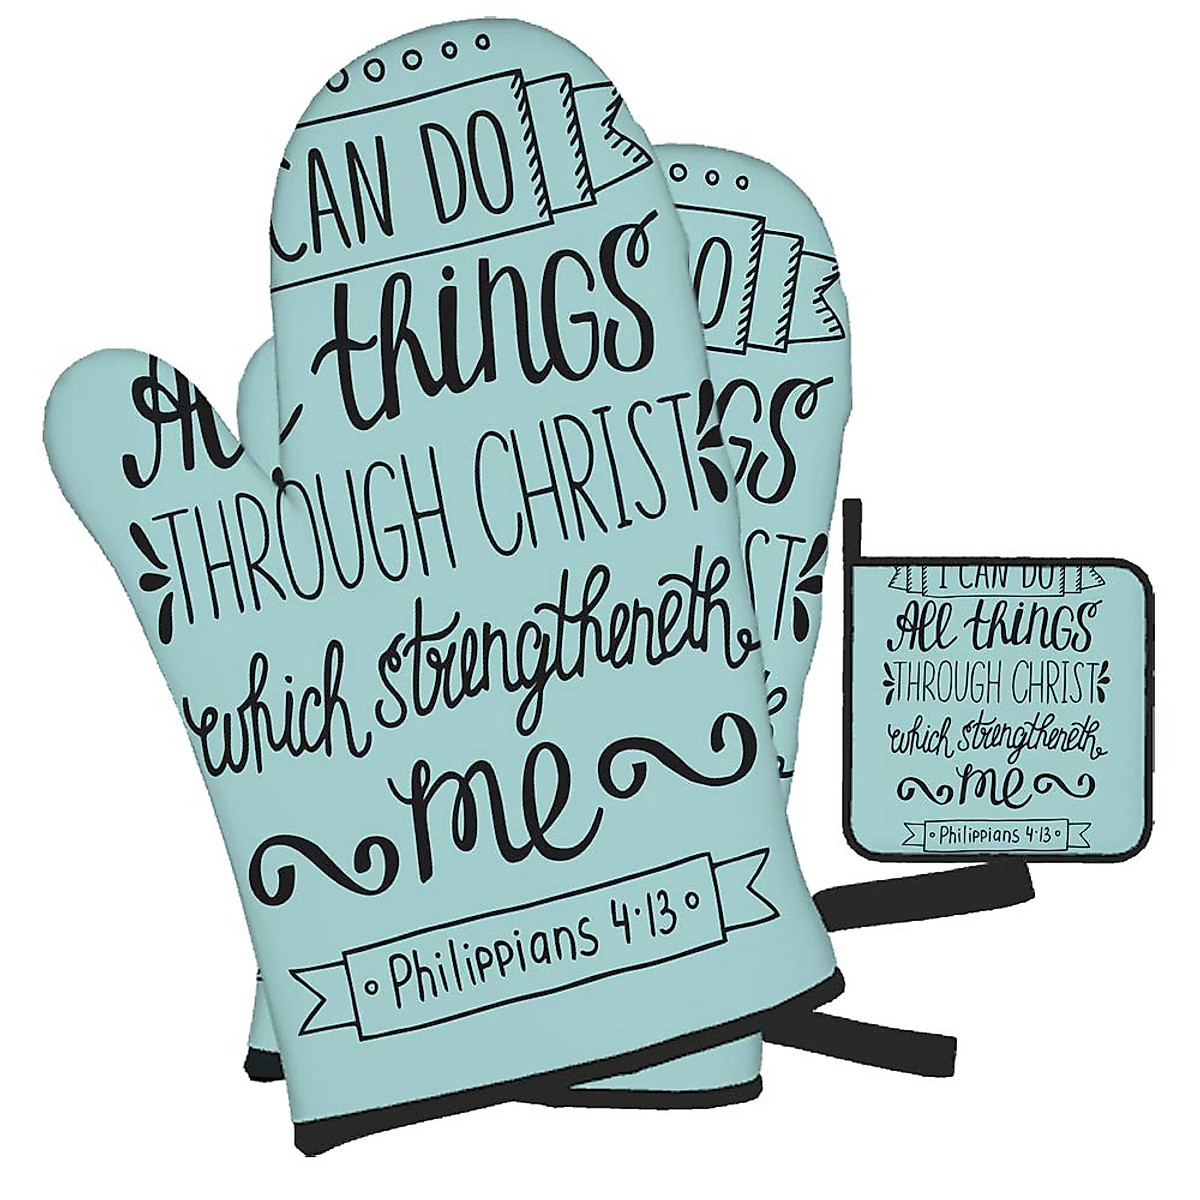 CAN DO
All things
THROUGH CHRIST
which strengtheneth
me
Philippians 4:13
O
GS
ST
I CAN DO
All things
THROUGH CHRIST
which strengtheneth
me
Philippians 4:13